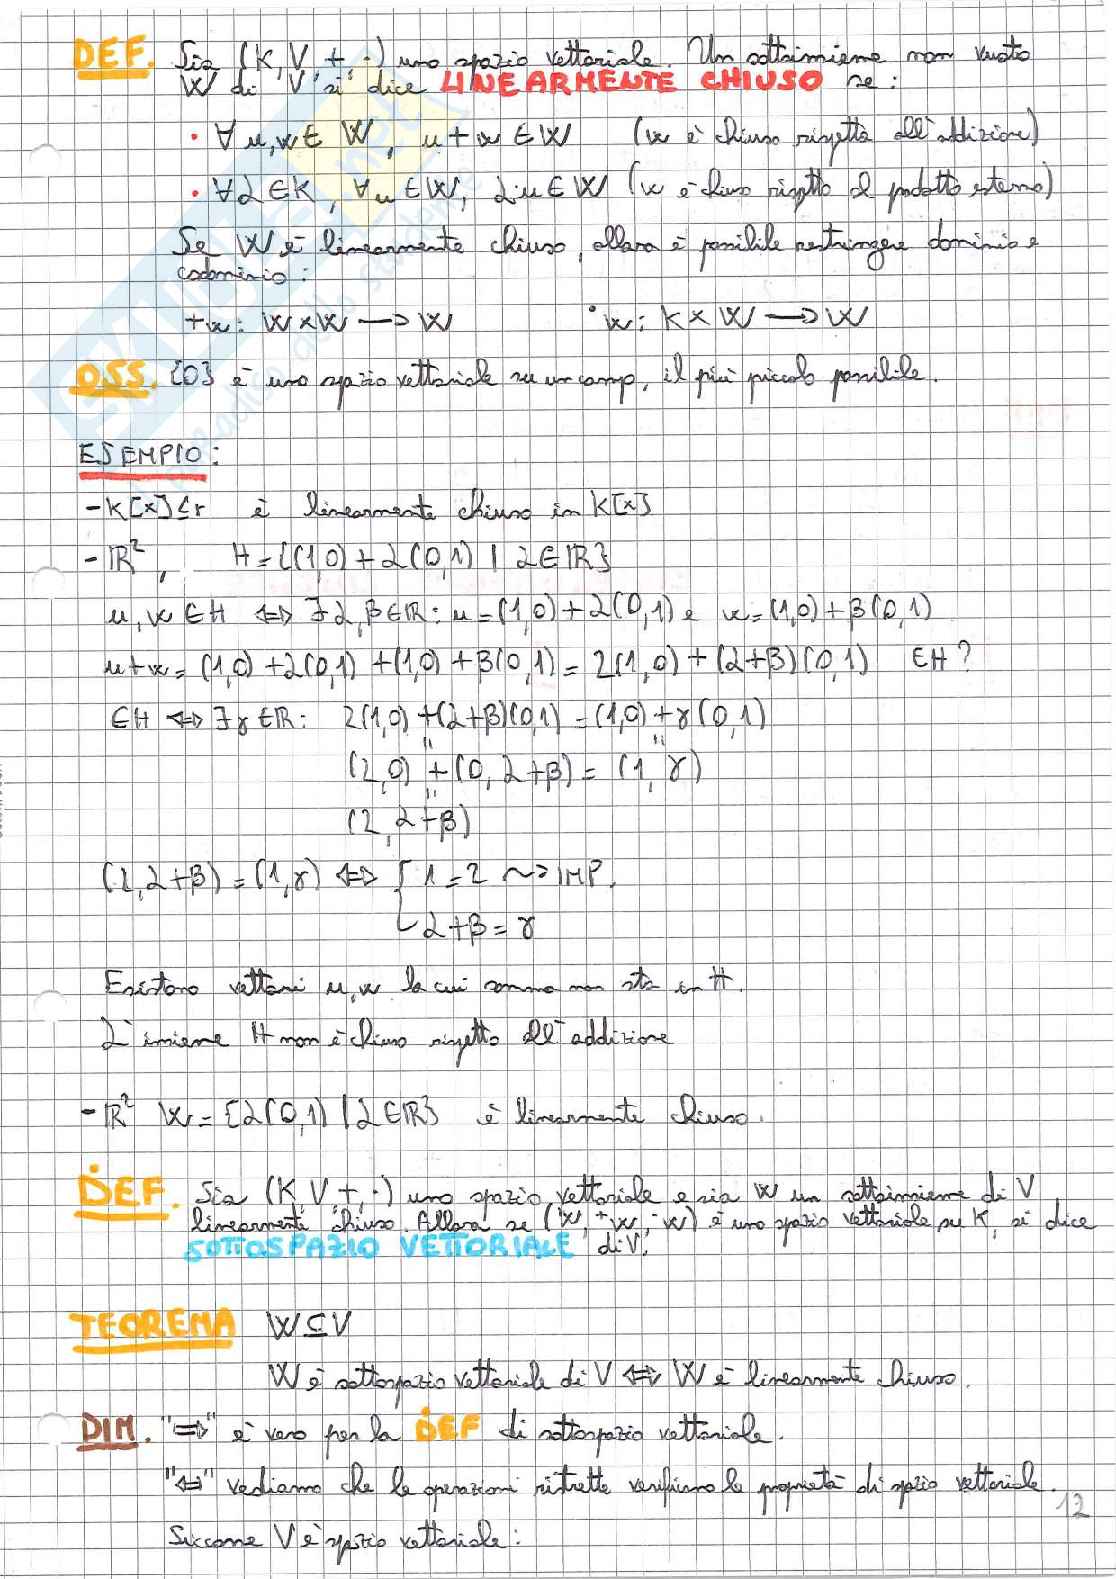 DEF. Sia (K, V, +, ·) uno spazio vettoriale. Un sottoinsieme non vuoto
W di V si dice LINEARMENTE CHIUSO se:
• ∀ u, w ∈ W, u + w ∈ W (W è chiuso rispetto all'addizione)
• ∀α ∈ K, ∀u ∈ W, αu ∈ W (W è chiuso rispetto al prodotto esterno)
Se W è linearmente chiuso, allora è possibile restringere dominio e
codominio:
+w: W×W → W ·w: K×W → W
OSS. {0} è uno spazio vettoriale su un campo, il più piccolo possibile.
ESEMPIO:
- K[x]≤r è linearmente chiuso in K[x]
- ℝ², H = {(1,0) + α(0,1) | α ∈ ℝ}
u, w ∈ H ⇔ ∃ α, β ∈ ℝ: u = (1,0) + α(0,1) e w = (1,0) + β(0,1)
u + w = (1,0) + α(0,1) + (1,0) + β(0,1) = 2(1,0) + (α+β)(0,1) ∈ H?
∈ H ⇔ ∃ γ ∈ ℝ: 2(1,0) + (α+β)(0,1) = (1,0) + γ(0,1)
(2,0) + (0, α+β) = (1, γ)
(2, α+β)
(2, α+β) = (1, γ) ⇔ { 1 = 2 ⇝ IMP.
α+β = γ
Esistono vettori u, w la cui somma non sta in H.
L'insieme H non è chiuso rispetto all'addizione
- ℝ² W = {α(0,1) | α ∈ ℝ} è linearmente chiuso.
DEF. Sia (K, V, +, ·) uno spazio vettoriale e sia W un sottoinsieme di V,
linearmente chiuso. Allora se (W, +w, ·w) è uno spazio vettoriale su K, si dice
SOTTOSPAZIO VETTORIALE di V.
TEOREMA W ⊆ V
W è sottospazio vettoriale di V ⇔ W è linearmente chiuso.
DIM. "⇒" è vero per la DEF di sottospazio vettoriale.
"⇐" vediamo che le operazioni ristrette verificano le proprietà di spazio vettoriale.
12
Siccome V è spazio vettoriale: